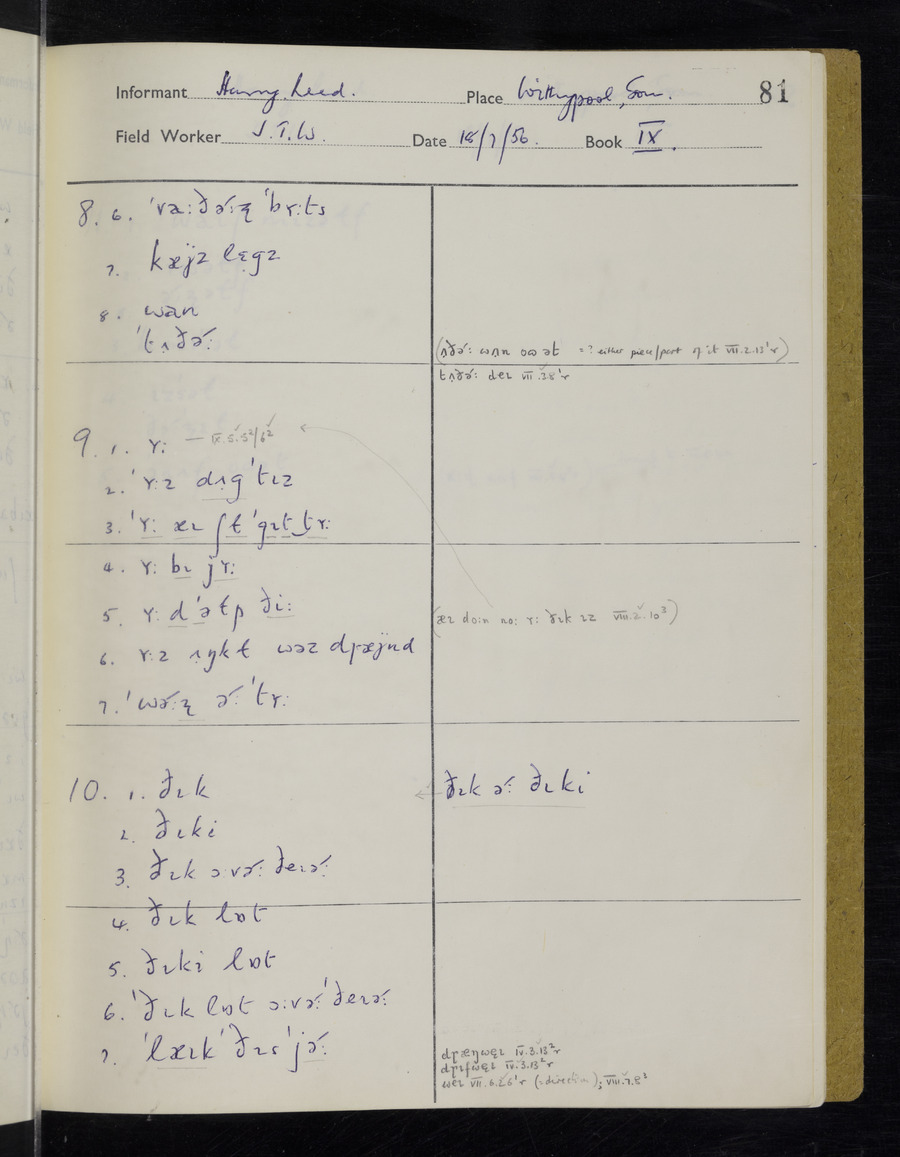 Informant Harry Reed. Place Withypool, Som. 81
Field Worker J.T.W. Date 18/7/56. Book IX.
8. 6. ˈvæ:ðə˞:ʐ ˈbʏ:ts
7. kæÿz lɛ̣gz
8. wan
ˈtʌ̣ðə˞:
(ʌ̣ðə˞: wʌn ət =? either piece/part of it VII.2.13ˈr)
tʌ̣ðə˞: deɪ VII.3.8ˈr
9. 1. ʏ: — IX.5.5²/6²
2. ˈʏ:z dʌ̣g ˈtɪz
3. ˈʏ: æɪ ʃt ˈgɪt tʏ:
4. ʏ: bɪ jʏ:
5. ʏ: dˈətp ði:
6. ʏ:z ʌŋkt wəz dɹæÿnd
7. ˈwə˞:ʐ ə˞: ˈtʏ:
(æɪ do:n no: ʏ: ðɪk ɪz VIII.2.10³)
10. 1. ðɪk
ðɪk ə˞: ðɪki
2. ðɪki
3. ðɪk ɔ:və˞: ðeɪə˞:
4. ðɪk lɒt
5. ðɪki lɒt
6. ˈðɪk lɒt ɔ:və˞: ˈðeɪə˞:
7. ˈlæɪk ˈðɪs ˈjə˞:
dɹæŋwɛ̣ɪ IV.3.13²r
dɹɪfwɛ̣ɪ IV.3.13²r
weɪ VII.6.26ˈr (=direction); VIII.7.8³